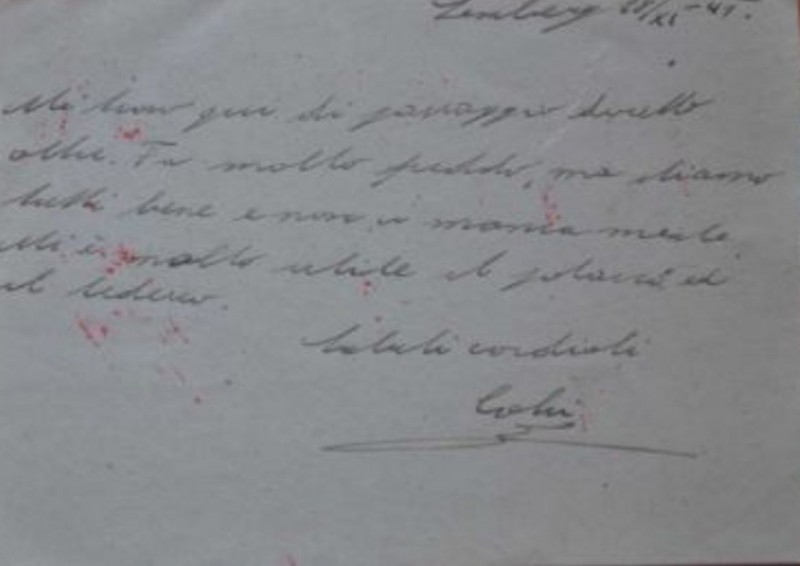 Lemberg 28/XI - 41.
Mi trovo qui di passaggio diretto
oltre. Fa molto freddo, ma stiamo
tutti bene e non ci manca niente.
Mi è molto utile il slavo ed
il tedesco.
Saluti cordiali